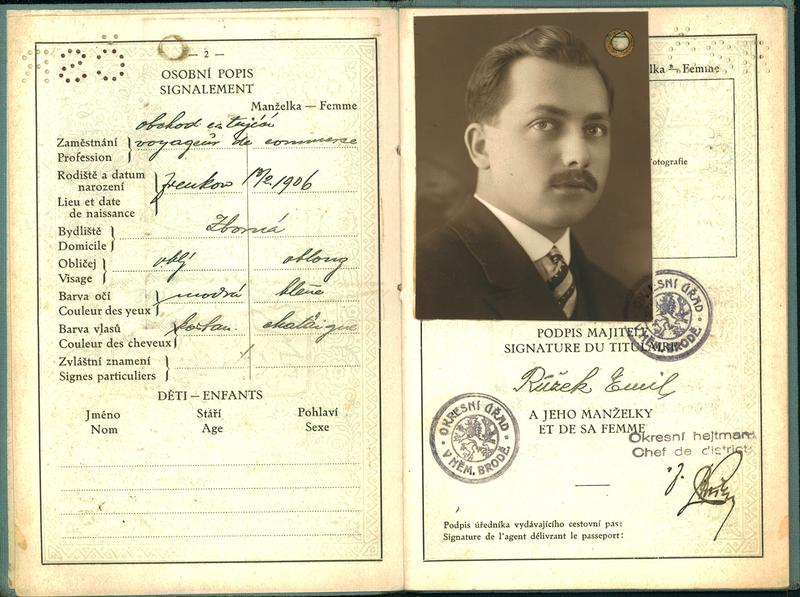 — 2 —
OSOBNÍ POPIS
SIGNALEMENT
Manželka — Femme
obchod. cestující
Zaměstnání
Profession
voyageur de commerce
Rodiště a datum
narození
Lieu et date
de naissance
1906
Bydliště
Domicile
Zborná
Obličej
Visage
oblý oblong
Barva očí
Couleur des yeux
modrá bleue
Barva vlasů
Couleur des cheveux
kaštan. chataigne
Zvláštní znamení
Signes particuliers
DĚTI — ENFANTS
Jméno Stáří Pohlaví
Nom Age Sexe
lka — Femme
otografie
PODPIS MAJITELE
SIGNATURE DU TITULAIRE
OKRESNÍ ÚŘAD
V NĚM. BRODĚ
Růžek Emil
A JEHO MANŽELKY
ET DE SA FEMME
OKRESNÍ ÚŘAD
V NĚM. BRODĚ
Okresní hejtman
Chef de district
Podpis úředníka vydávajícího cestovní pas:
Signature de l'agent délivrant le passeport: